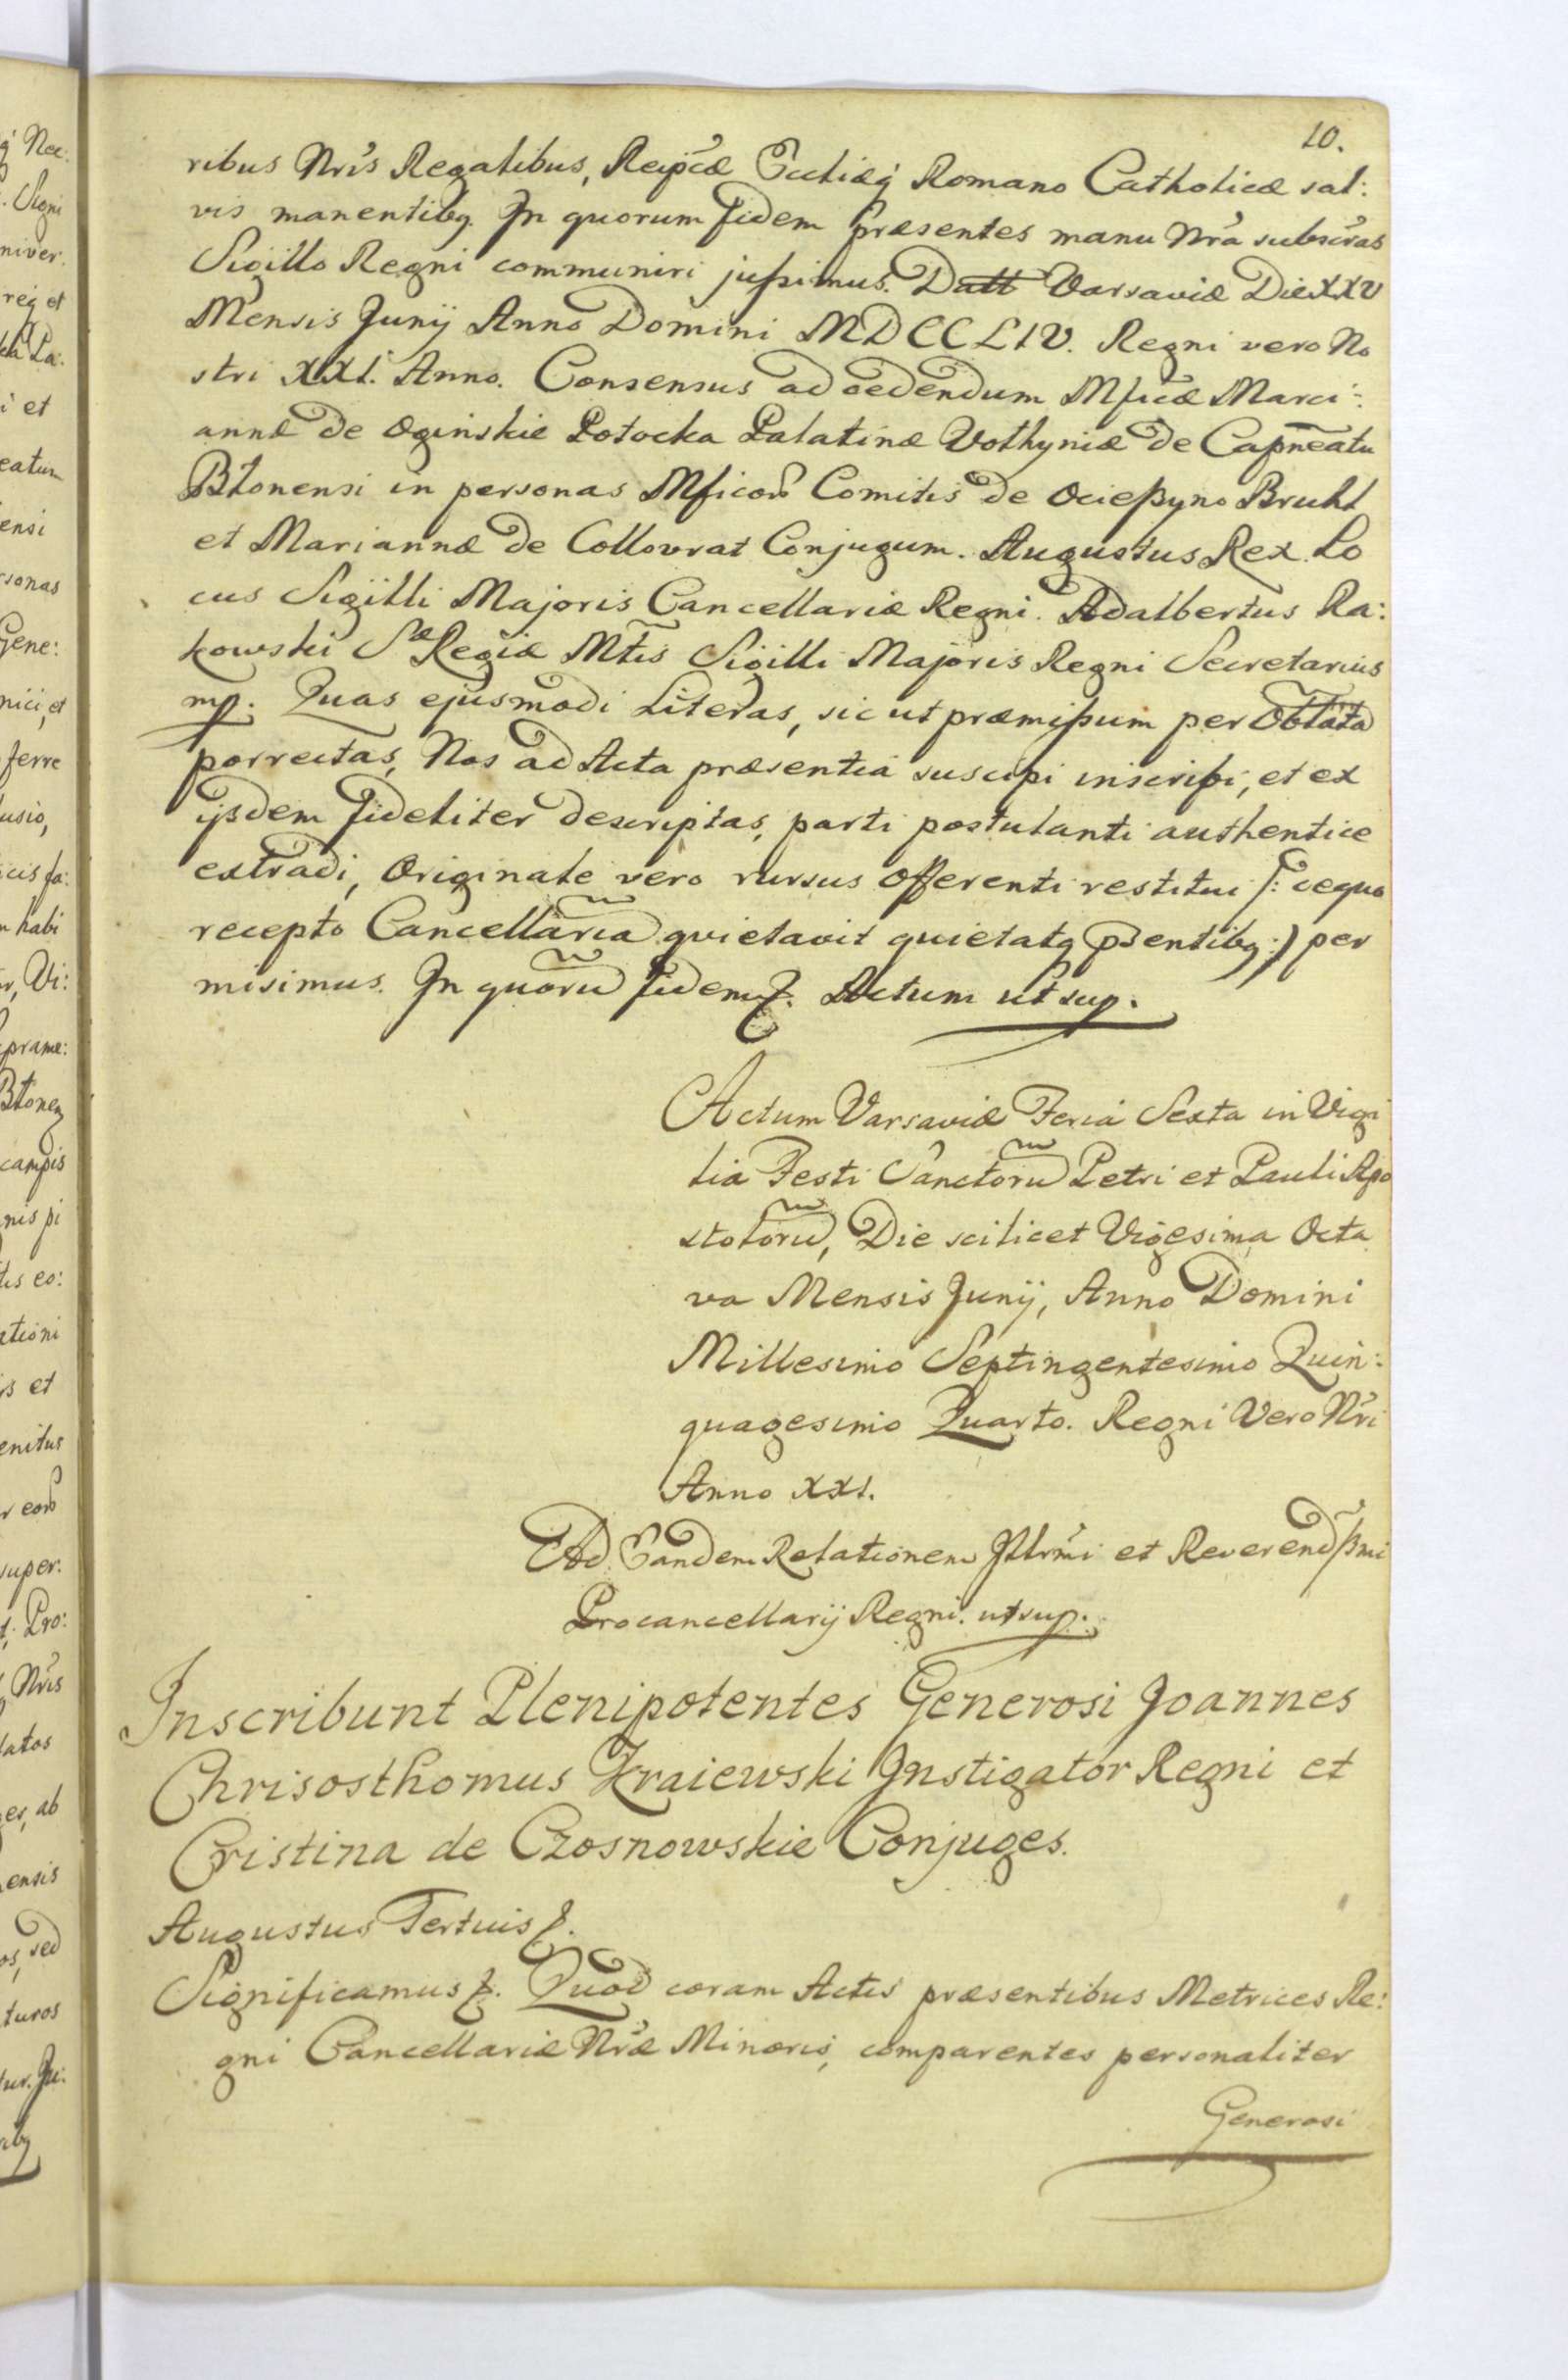 10.
ribus Nris Regalibus, Reipcæ Eccliæq Romano Catholicæ sal:
vis manentibq. In quorum fidem præsentes manu Nra subscras
Sigillo Regni communiri jußimus. Datt Varsaviæ Die XXV
Mensis Junij Anno Domini MDCCLIV. Regni vero No
stri XXI. Anno. Consensus ad cedendum Mficæ Marci:
annæ de Oginskie Potocka Palatinæ Volhyniæ de Capneatu
Btonensi in personas Mficor Comitis de Ocießyno Bruhl
et Mariannæ de Collovrat Conjugum. Augustus Rex. Lo
cus Sigilli Majoris Cancellariæ Regni. Adalbertus Ra:
kowski Sæ Regiæ Mtis Sigilli Majoris Regni Secretarius
mp. Quas ejusmodi Literas, sic ut præmißum per Oblata
porrectas, Nos ad Acta præsentia suscipi inscribi, et ex
ijsdem fideliter descriptas, parti postulanti authentice
extradi, Originale vero rursus Offerenti restitui /: de quo
recepto Cancellaria quietavit quietatq pdsentibq :/ per
misimus. In quoru fidem &. Actum ut sup.
Actum Varsaviæ Feria Sexta in Vigi
lia Festi Sanctoru Petri et Pauli Apo
stoloru, Die scilicet Vigesima Octa
va Mensis Junij, Anno Domini
Millesimo Septingentesimo Quin:
quagesimo Quarto. Regni Vero Nri
Anno XXI.
Ad Eandem Relationem Jllrmi et Reverendßmi
Procancellarij Regni. ut sup.
Inscribunt Plenipotentes Generosi Joannes
Chrisosthomus Kraiewski Instigator Regni et
Cristina de Czosnowskie Conjuges.
Augustus Tertuis &.
Significamus &. Quod coram Actis præsentibus Metrices Re:
gni Cancellariæ Nræ Minoris, comparentes personaliter
Generosi